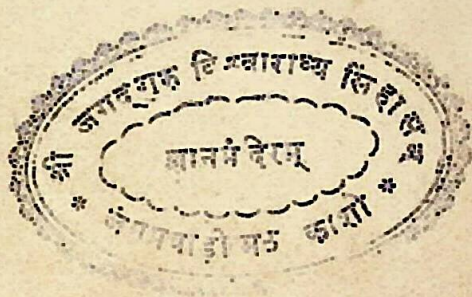 श्री जगद्गुरु विश्वाराध्य सिंहासन
ज्ञानमंदिरम्
* जंगमवाडीमठ काशी *